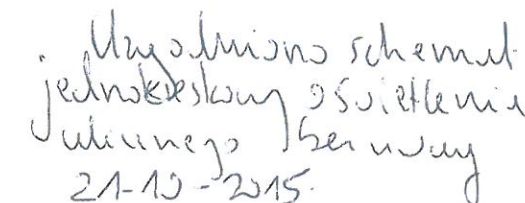 Uzgodniono schemat
jednokreskowy oświetlenia
ulicznego bez uwag
21-10-2015.